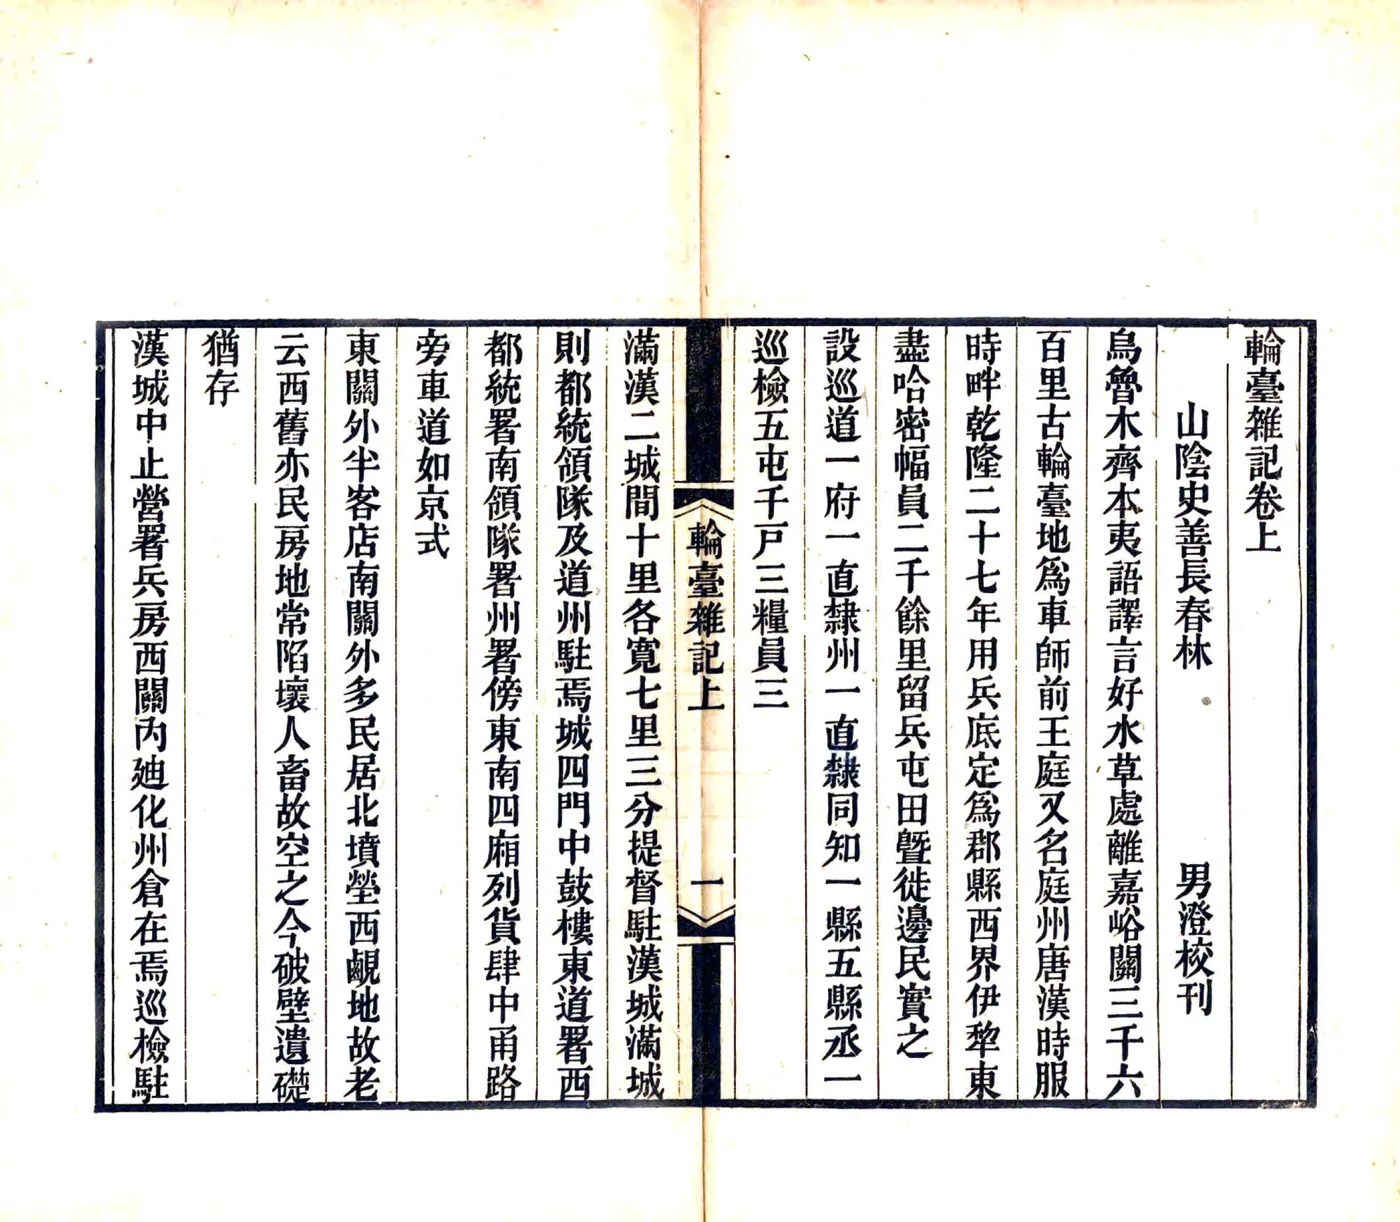 輪臺雜記卷上
山陰史善長春林　男澄校刊
烏魯木齊本夷語譯言好水草處離嘉峪關三千六
百里古輪臺地爲車師前王庭又名庭州唐漢時服
時畔乾隆二十七年用兵底定爲郡縣西界伊犂東
盡哈密幅員二千餘里留兵屯田曁徙邊民實之
設巡道一府一直隸州一直隸同知一縣五縣丞一
巡檢五屯千戸三糧員三
輪臺雜記上　一
滿漢二城間十里各寬七里三分提督駐漢城滿城
則都統領隊及道州駐焉城四門中鼓樓東道署西
都統署南領隊署州署傍東南四廂列貨肆中甬路
旁車道如京式
東關外半客店南關外多民居北墳塋西覰地故老
云西舊亦民房地常陷壞人畜故空之今破壁遺礎
猶存
漢城中止營署兵房西關內廸化州倉在焉巡檢駐